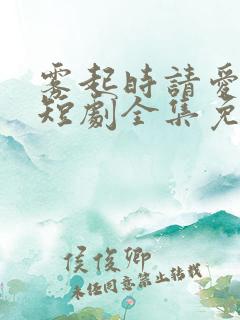 雾起時請愛
短劇全集免
侯俊卿
未任同意禁止转载